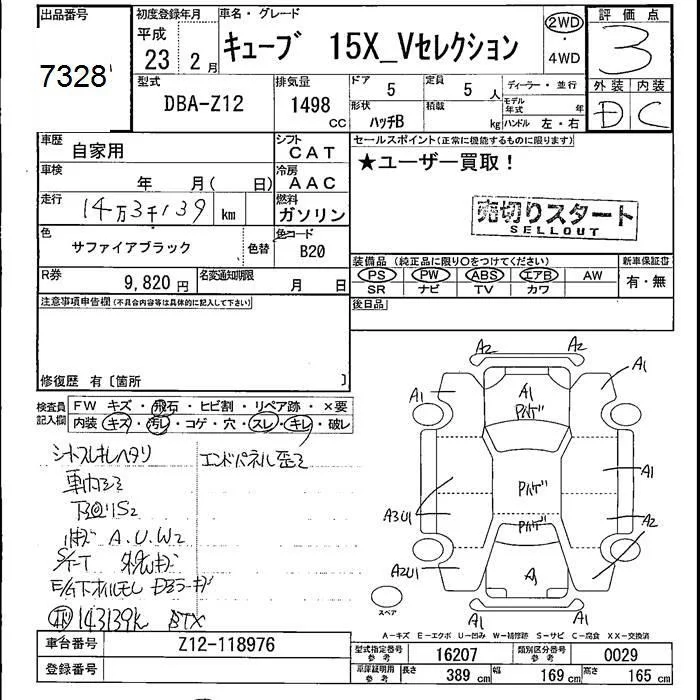 出品番号
7328
初度登録年月
平成
23 2 月
車名・グレード
キューブ 15X_Vセレクション
2WD
4WD
評価点
3
外装 内装
D C
型式
DBA-Z12
排気量
1498 CC
ドア 5
定員 5 人
形状 ハッチB
積載 kg
ディーラー・並行
モデル年式 年
ハンドル 左・右
車歴
自家用
シフト
CAT
車検
年 月( 日)
冷房
AAC
走行
14万3千139 km
燃料
ガソリン
色
サファイアブラック
色替
色コード
B20
R券
9,820 円
名変通知期限
月 日
セールスポイント(正常に機能するものに限ります)
★ユーザー買取!
売切りスタート
SELLOUT
装備品 (純正品に限り○をつけてください)
新車保証書
PS PW ABS エアB AW
SR ナビ TV カワ
有・無
後日品
注意事項申告欄(不具合内容等は具体的に記入して下さい)
修復歴 有〔箇所 〕
検査員記入欄
FW キズ・飛石・ヒビ割・リペア跡・×要
内装・キズ・汚レ・コゲ・穴・スレ・キレ・破レ
シートスレキレヘタリ
エンドパネル歪ミ
A.U.W2
143139k
A2 A2
A1 A1
A1
Pハゲ
Pハゲ
Pハゲ
A1
A3U1
A2
A2U1
A
A1 A1
スペア
A-キズ E-エクボ U-凹み W-補修跡 S-サビ C-腐食 XX-交換済
車台番号
Z12-118976
登録番号
型式指定番号 参考
16207
類別区分番号 参考
0029
車庫証明用 参考
長さ 389 cm
幅 169 cm
高さ 165 cm